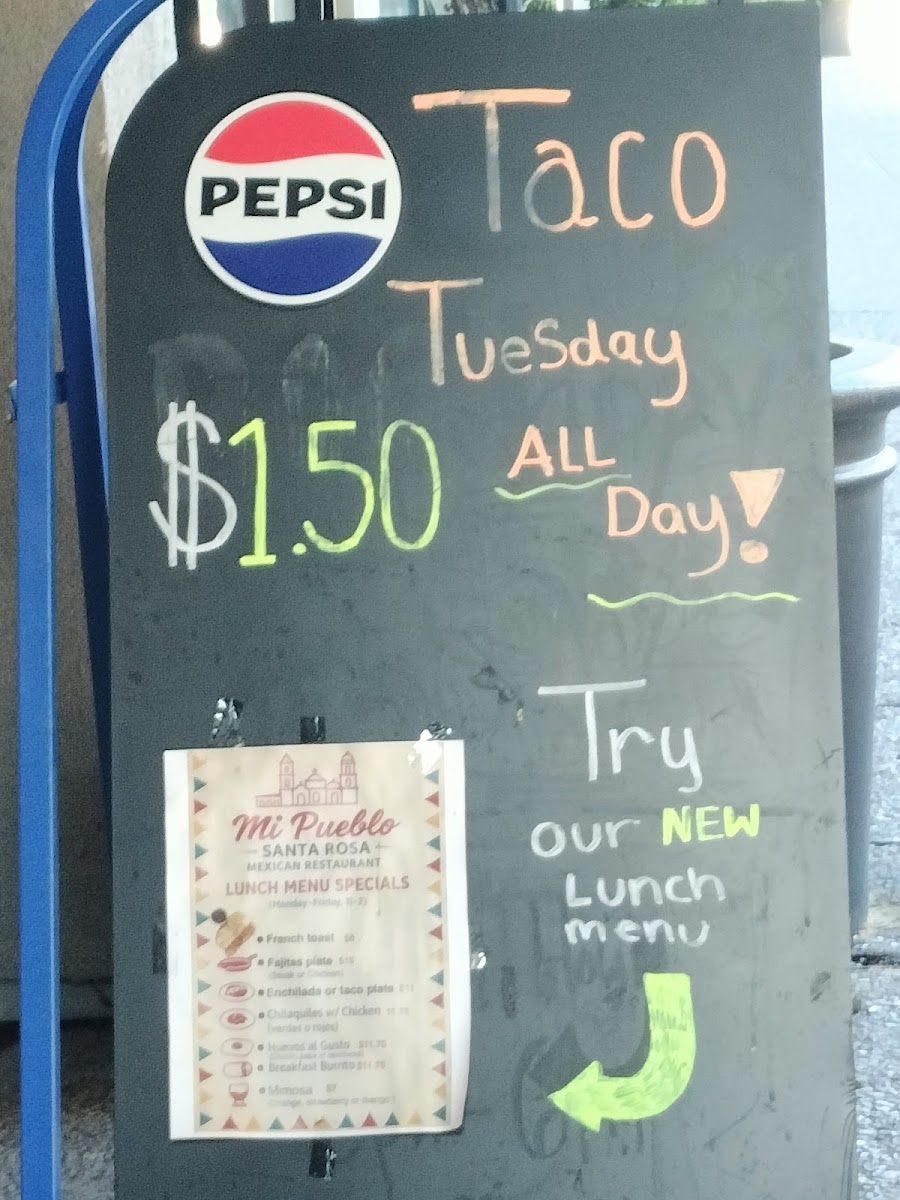 PEPSI
Taco
Tuesday
$1.50
ALL
Day!
Try
our NEW
Lunch
menu
Mi Pueblo
SANTA ROSA
MEXICAN RESTAURANT
LUNCH MENU SPECIALS
(Monday-Friday, 11-2)
• French toast $8
• Fajitas plate $15
(Steak or Chicken)
• Enchilada or taco plate
• Chilaquiles w/ Chicken
(verdes o rojos)
• Huevos al Gusto $11.75
• Breakfast Burrito $11.75
• Mimosa $7
(orange, strawberry or mango)